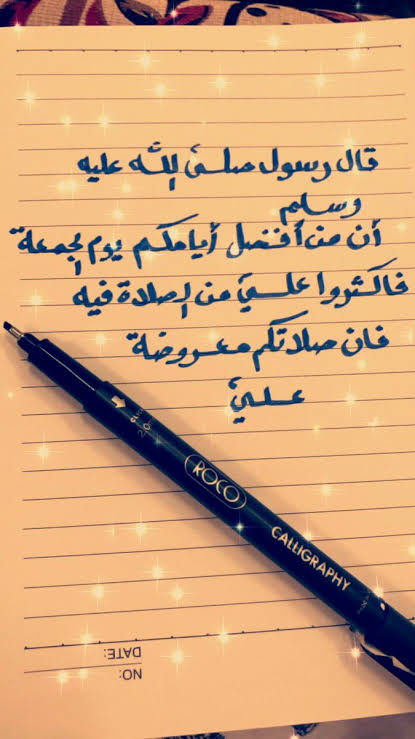 قال رسول صلى الله عليه
وسلم
أن من أفضل أيامكم يوم الجمعة
فاكثروا عليَ من الصلاة فيه
فان صلاتكم معروضة
عليَ
2.0
ROCO
CALLIGRAPHY
NO:
DATE: